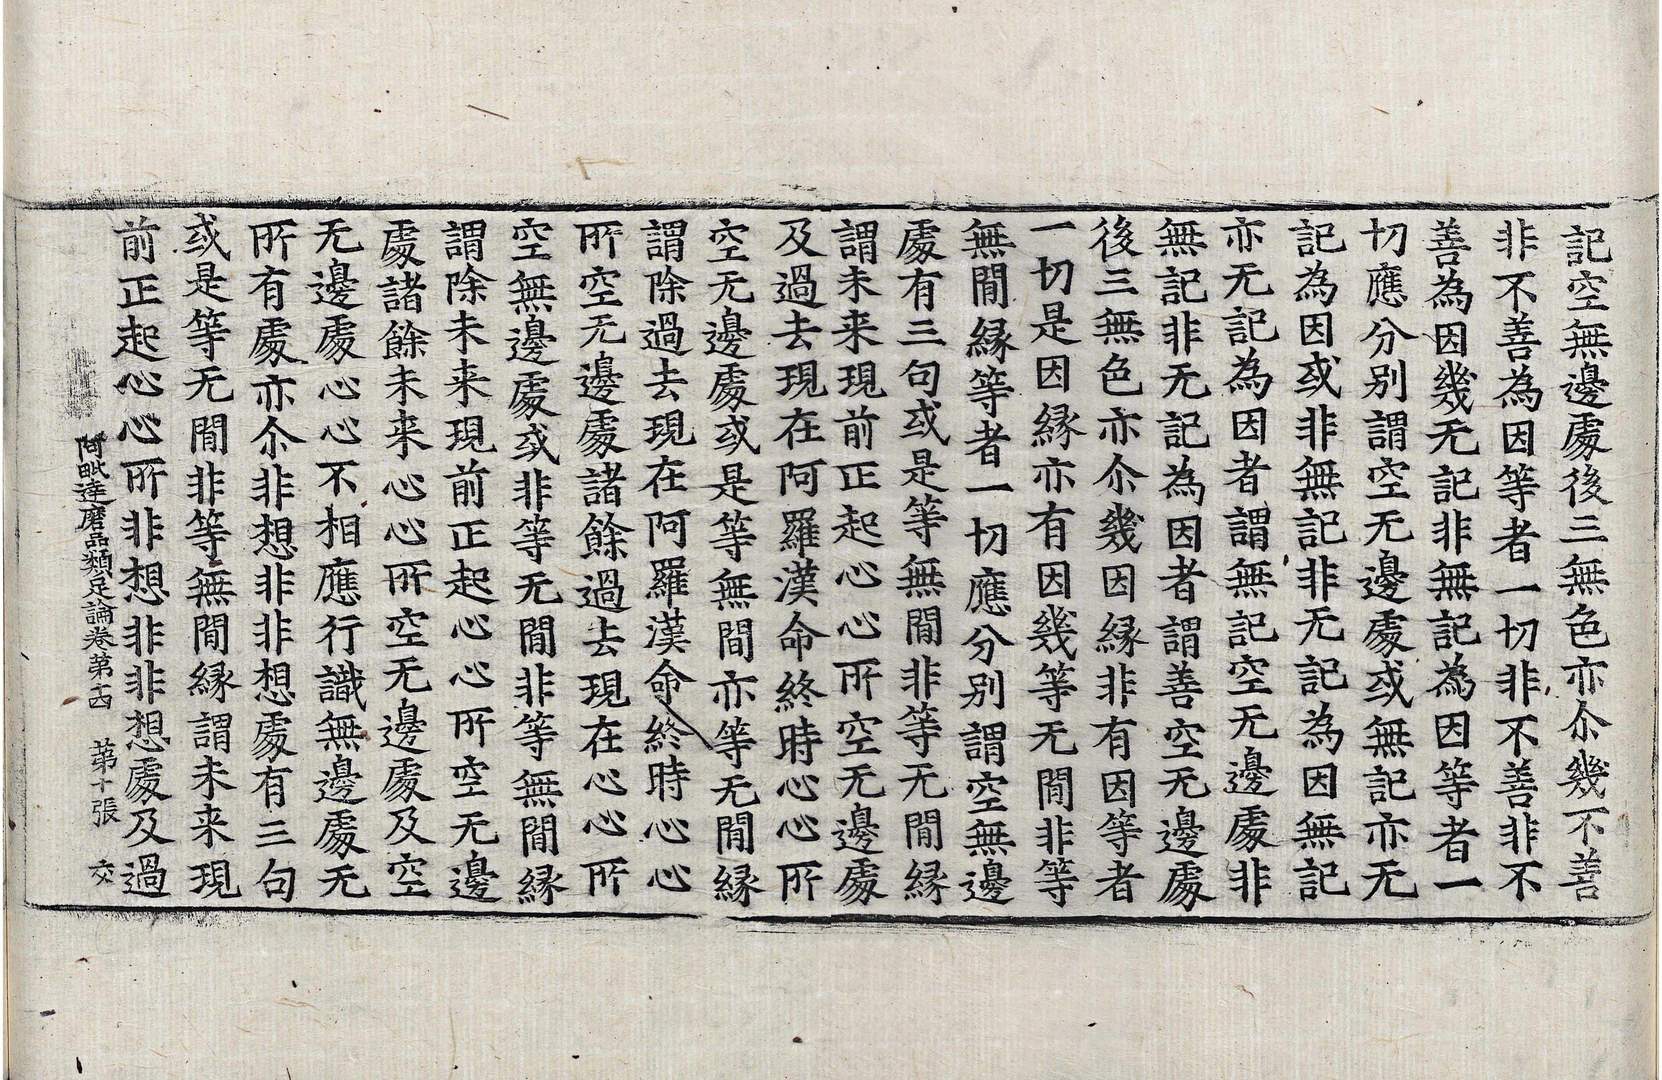 記空無邊處後三無色亦尒幾不善
非不善為因等者一切非不善非不
善為因幾无記非無記為因等者一
切應分別謂空无邊處或無記亦无
記為因或非無記非无記為因無記
亦无記為因者謂無記空无邊處非
無記非无記為因者謂善空无邊處
後三無色亦尒幾因縁非有因等者
一切是因縁亦有因幾等无間非等
無間縁等者一切應分別謂空無邊
處有三句或是等無間非等无間縁
謂未来現前正起心心所空无邊處
及過去現在阿羅漢命終時心心所
空无邊處或是等無間亦等无間縁
謂除過去現在阿羅漢命終時心心
所空无邊處諸餘過去現在心心所
空無邊處或非等无間非等無間縁
謂除未来現前正起心心所空无邊
處諸餘未来心心所空无邊處及空
无邊處心不相應行識無邊處无
所有處亦尒非想非非想處有三句
或是等无間非等無間縁謂未来現
前正起心心所非想非非想處及過
阿毗達磨品類足論卷第十四 第十張 交